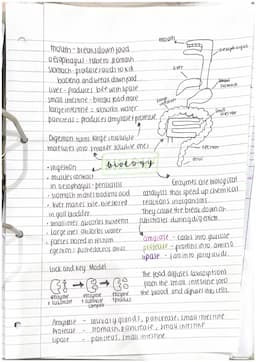 mouth - breaks down food
oesophagus - tube to stomach
stomach - produces acid to kill
bacteria and break down food
liver - produces bile
small intestine - breaks food more
large intestine = absorbs water
pancreas = produces amylase protease
mouth
oesophagus
liver
small intestine
rectum
anus
Digestion turns large insoluble
molecules into smaller soluble ones
biology
- ingestion
- muscles contract
in oesophagus - peristalsis
- stomach makes food into acid
- liver makes bile, bile stored
in gall bladder
- small inter absorbs nutrients
- large inter absorbs water
- faeces stored in rectum
Enzymes are biological
catalysts that speed up chemical
reactions in organisms.
They cause the break down of
substrates during digestion.
amylase - carbs into glucose
protease - proteins into amino
lipase - fats into fatty acids
Lock and key Model
enzyme
+ substrate
enzyme
substrate
complex
enzyme
+ product
The food diffuses / absorption
from the small intestine into
the blood and diffuses into cells.
Amylase - salivary glands, pancreas, small intestine
Protease - stomach, pancreas, small intestine
Lipase - pancreas, small intestine